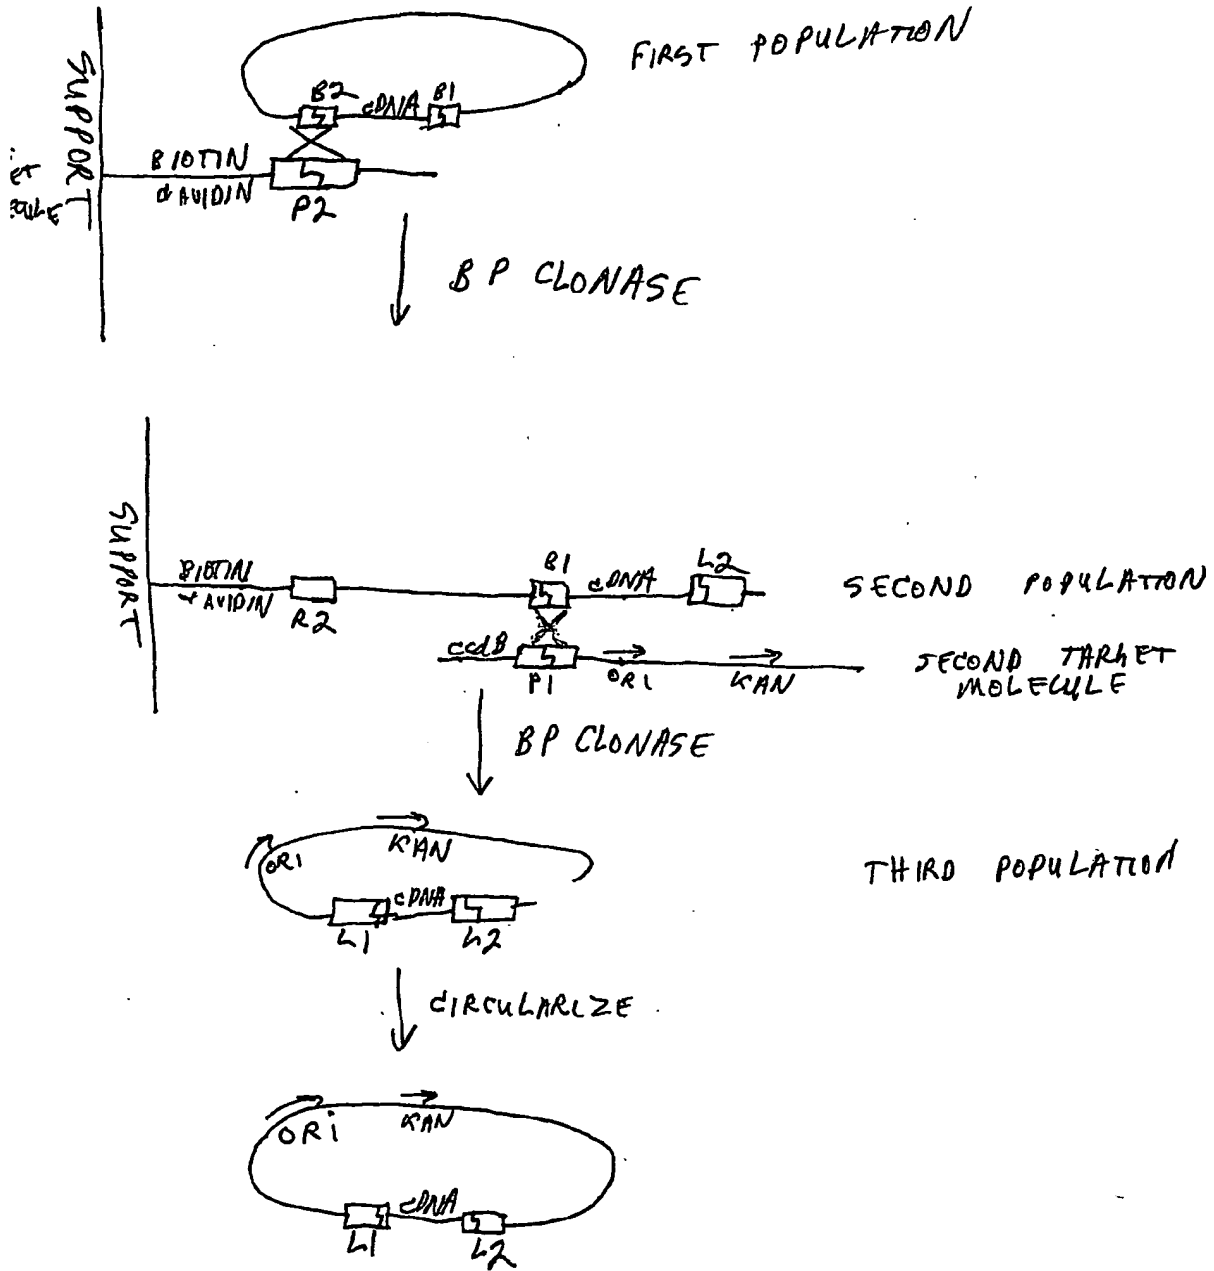 FIRST POPULATION
SUPPORT
B2 cDNA B1
BIOTIN
AVIDIN
P2
BP CLONASE
SUPPORT
BIOTIN
AVIDIN
R2
B1 cDNA L2
SECOND POPULATION
ccdB P1 ORI KAN
SECOND TARGET
MOLECULE
BP CLONASE
ORI KAN
THIRD POPULATION
cDNA
L1 L2
CIRCULARIZE
ORi KAN
cDNA
L1 L2